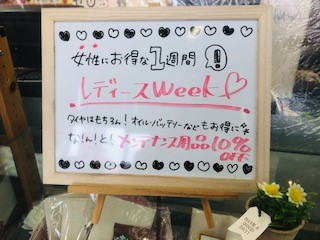 女性にお得な1週間!
レディースWeek♡
タイヤはもちろん!オイル・バッテリーなどもお得に
なんと!メンテナンス用品10%
OFF